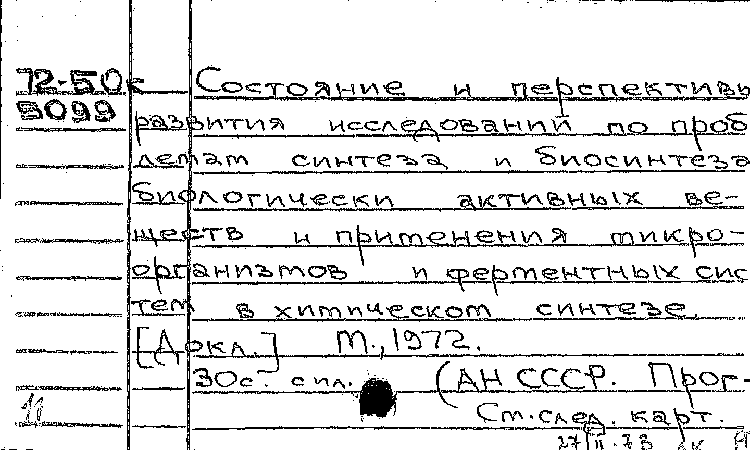 72-50к Состояние и перспективы
5099
развития исследований по проб
лемам синтеза и биосинтеза
биологически активных ве-
ществ и применения микро-
организмов и ферментных сис
тем в химическом синтезе.
[Докл.] М., 1972.
30с. с ил. (АН СССР. Прог-
См. след. карт.
27/II-73